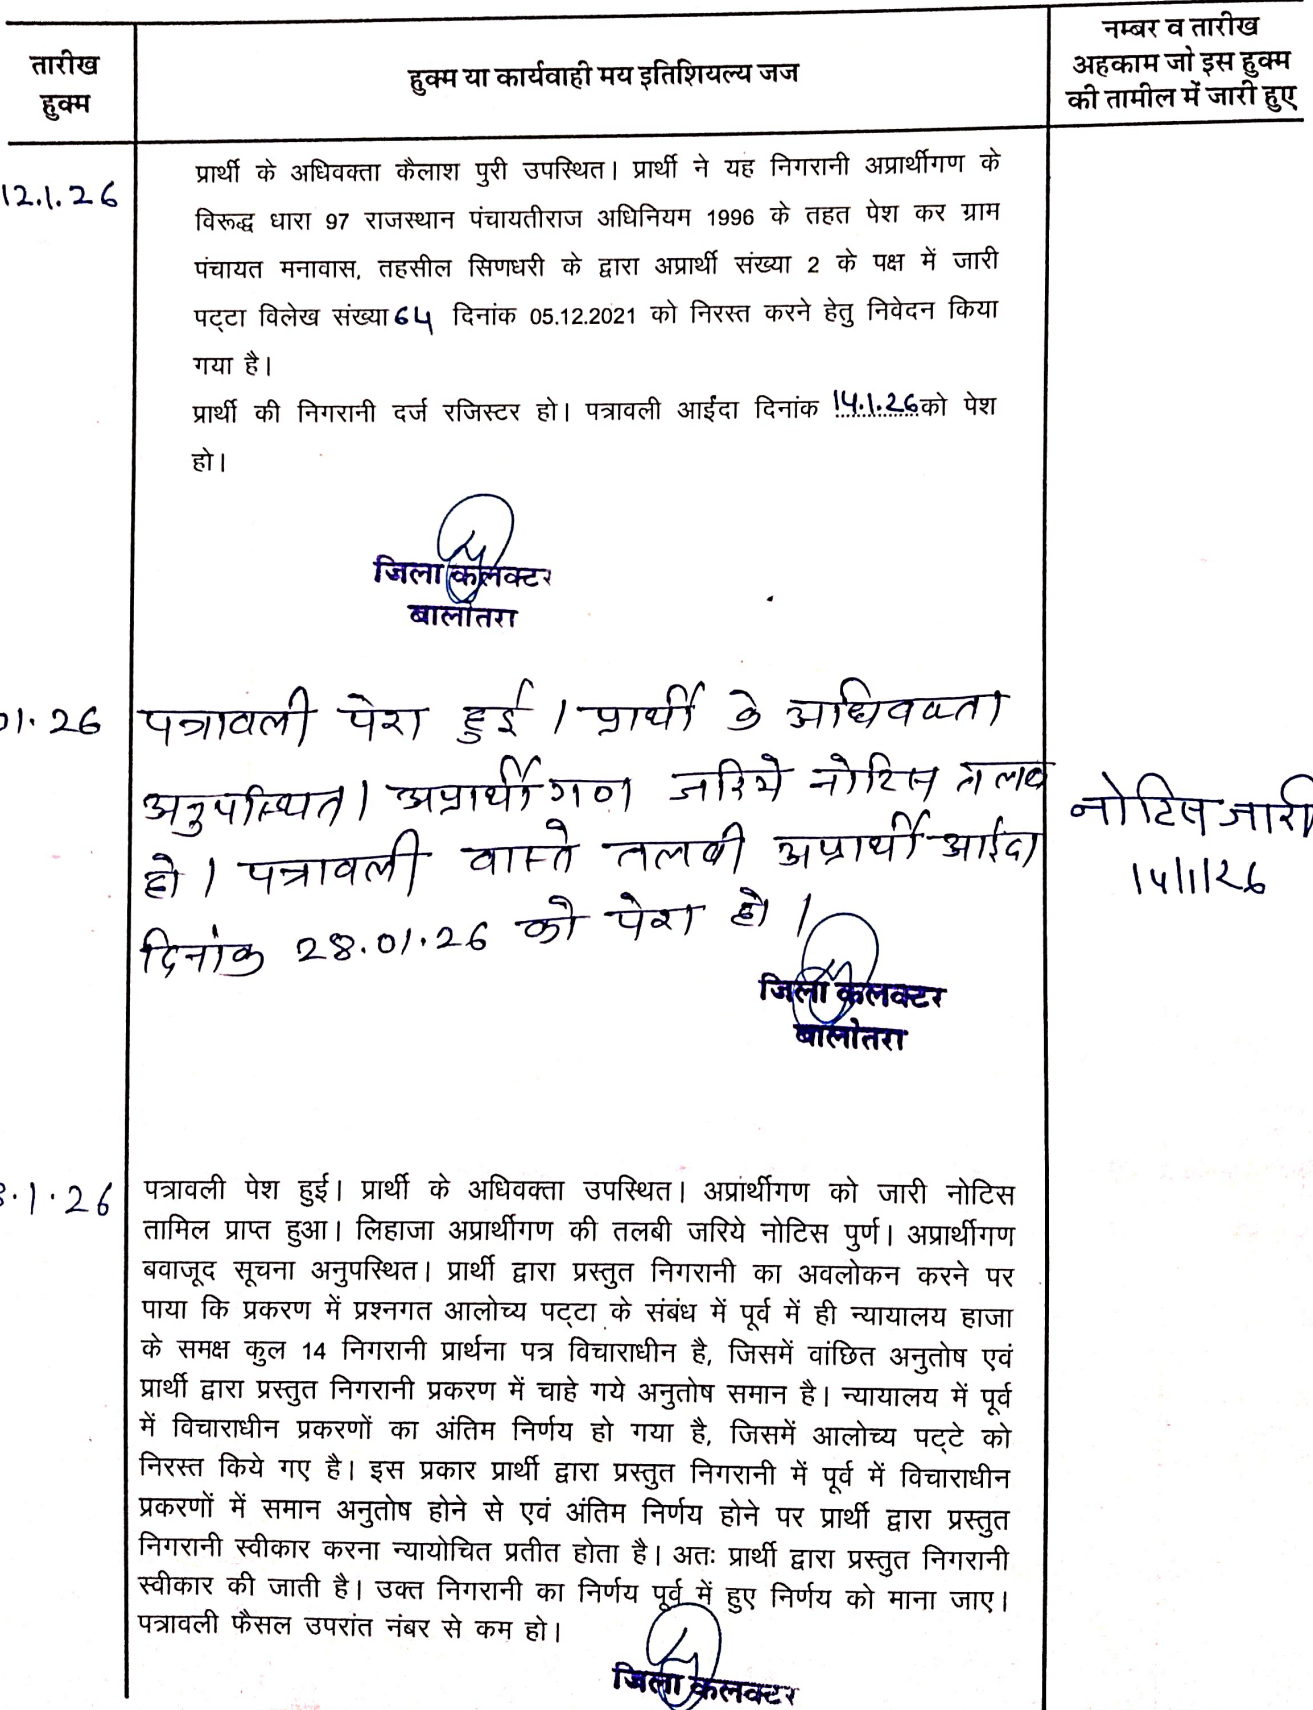 तारीख
हुक्म
हुक्म या कार्यवाही मय इतिशियल्य जज
नम्बर व तारीख
अहकाम जो इस हुक्म
की तामील में जारी हुए
12.1.26
प्रार्थी के अधिवक्ता कैलाश पुरी उपस्थित। प्रार्थी ने यह निगरानी अप्रार्थीगण के
विरूद्ध धारा 97 राजस्थान पंचायतीराज अधिनियम 1996 के तहत पेश कर ग्राम
पंचायत मनावास, तहसील सिणधरी के द्वारा अप्रार्थी संख्या 2 के पक्ष में जारी
पट्टा विलेख संख्या 64 दिनांक 05.12.2021 को निरस्त करने हेतु निवेदन किया
गया है।
प्रार्थी की निगरानी दर्ज रजिस्टर हो। पत्रावली आईंदा दिनांक 14.1.26 को पेश
हो।
जिला कलक्टर
बालोतरा
01.26
पत्रावली पेश हुई। प्रार्थी के अधिवक्ता
अनुपस्थित। अप्रार्थीगण जरिये नोटिस तलब
हो। पत्रावली वास्ते तलबी अप्रार्थी आईंदा
दिनांक 28.01.26 को पेश हो।
नोटिस जारी
14/1/26
जिला कलक्टर
बालोतरा
8.1.26
पत्रावली पेश हुई। प्रार्थी के अधिवक्ता उपस्थित। अप्रार्थीगण को जारी नोटिस
तामिल प्राप्त हुआ। लिहाजा अप्रार्थीगण की तलबी जरिये नोटिस पुर्ण। अप्रार्थीगण
बवाजूद सूचना अनुपस्थित। प्रार्थी द्वारा प्रस्तुत निगरानी का अवलोकन करने पर
पाया कि प्रकरण में प्रश्नगत आलोच्य पट्टा के संबंध में पूर्व में ही न्यायालय हाजा
के समक्ष कुल 14 निगरानी प्रार्थना पत्र विचाराधीन है, जिसमें वांछित अनुतोष एवं
प्रार्थी द्वारा प्रस्तुत निगरानी प्रकरण में चाहे गये अनुतोष समान है। न्यायालय में पूर्व
में विचाराधीन प्रकरणों का अंतिम निर्णय हो गया है, जिसमें आलोच्य पट्टे को
निरस्त किये गए है। इस प्रकार प्रार्थी द्वारा प्रस्तुत निगरानी में पूर्व में विचाराधीन
प्रकरणों में समान अनुतोष होने से एवं अंतिम निर्णय होने पर प्रार्थी द्वारा प्रस्तुत
निगरानी स्वीकार करना न्यायोचित प्रतीत होता है। अतः प्रार्थी द्वारा प्रस्तुत निगरानी
स्वीकार की जाती है। उक्त निगरानी का निर्णय पूर्व में हुए निर्णय को माना जाए।
पत्रावली फैसल उपरांत नंबर से कम हो।
जिला कलक्टर